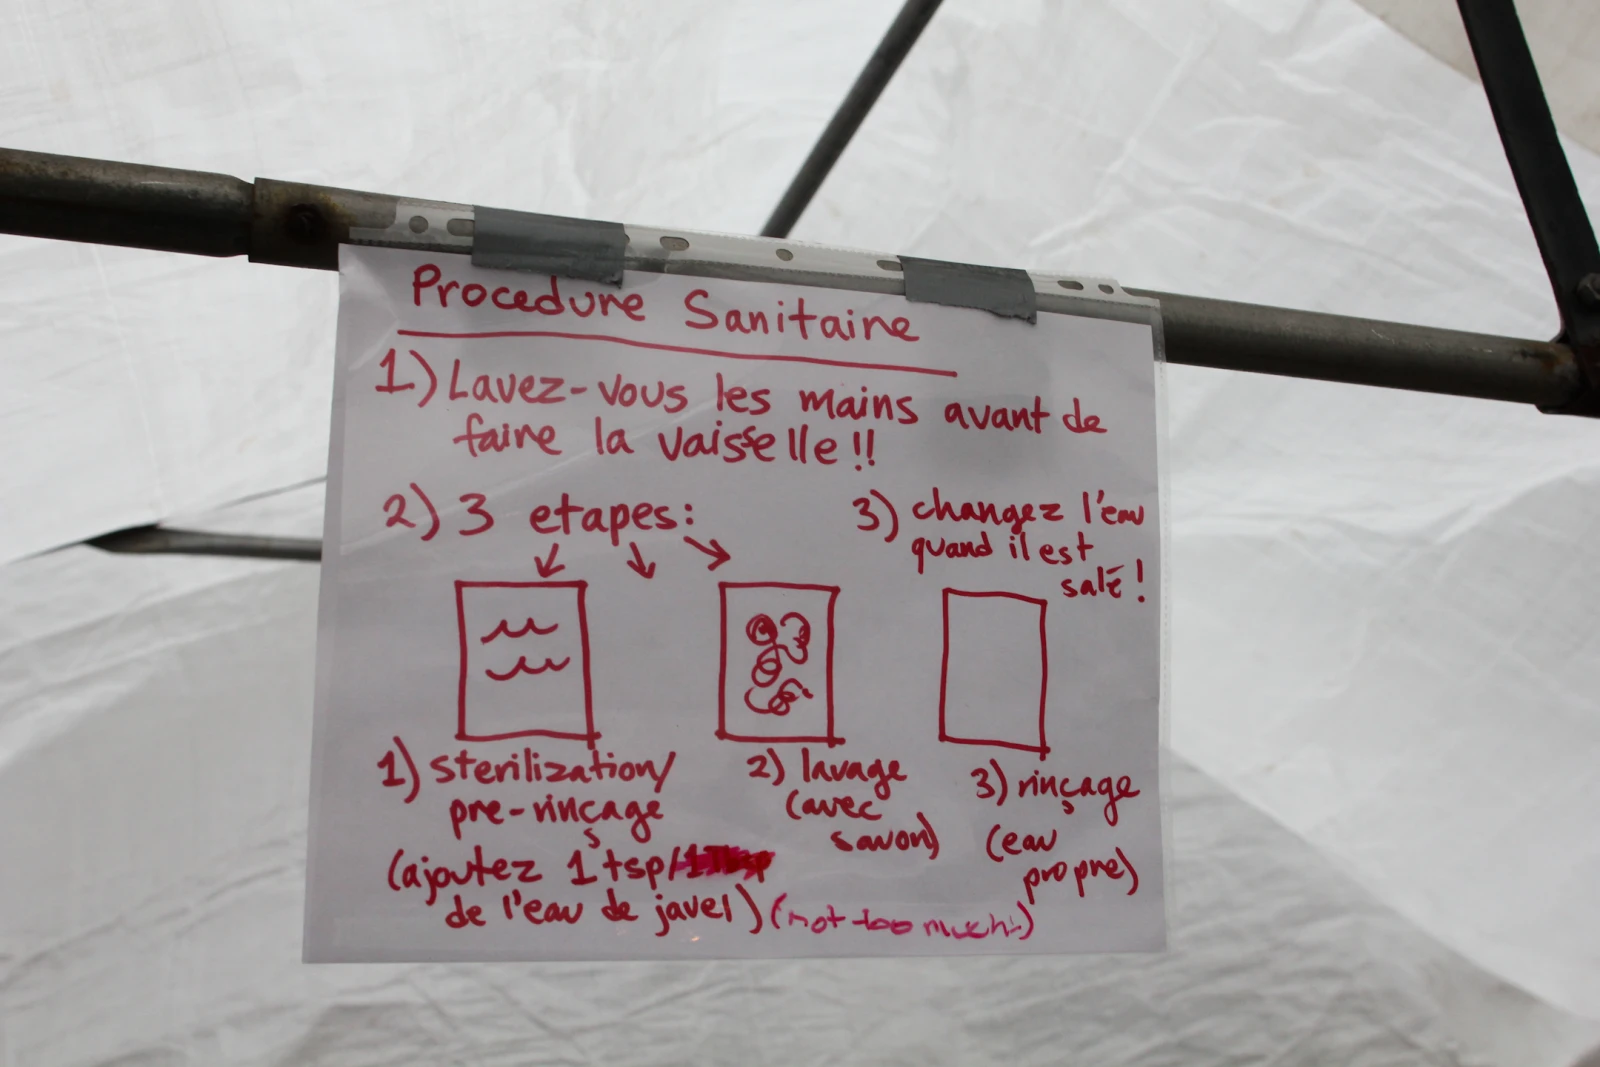 Procedure Sanitaire
1) Lavez-vous les mains avant de
faire la vaisselle!!
2) 3 etapes:
3) changez l'eau
quand il est
salé!
1) sterilization/
pre-rinçage
(ajoutez 1 tsp/
de l'eau de javel) (not too much!)
2) lavage
(avec
savon)
3) rinçage
(eau
propre)